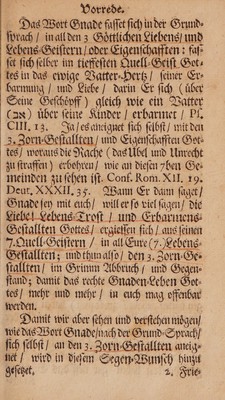 Vorrede.
Das Wort Gnade fasset sich in der Grund-
sprach/ in all den 3 Göttlichen Liebens/ und
Lebens-Geistern/ oder Eigenschafften: fas-
set sich selber im tieffesten Quell-Geist Got-
tes in das ewige Vatter-Hertz/ seiner Er-
barmung/ und Liebe/ darin er sich (über
Seine Geschöpff) gleich wie ein Vatter
(אב) über seine Kinder/ erbarmet/ Ps.
CIII. 13. Ja/ es aneignet sich selbst/ mit den
3. Zorn-Gestallten/ und Eigenschafften Got-
tes/ woraus die Rache (das Ubel und Unrecht
zu straffen) erbohren/ wie an diesen 7ben Ge-
meinden zu sehen ist. Conf. Rom. XII, 19.
Deut. XXXII. 35. Wann Er dann saget/
Gnade sey mit euch/ will er so viel sagen/ die
Liebe/ Lebens-Trost/ und Erbarmens-
Gestallten Gottes/ ergiessen sich/ aus seinen
7. Quell-Geistern/ in all Eure (7.) Lebens-
Gestallten; und thun also/ den 3. Zorn-Ge-
stallten/ im Grimm Abbruch/ und Gegen-
stand; damit das rechte Gnaden-Leben Got-
tes/ mehr und mehr/ in euch mag offenbar
werden.
Damit wir aber sehen und verstehen mögen/
wie das Wort Gnade/ nach der Grund-Sprach/
sich selbst/ an den 3. Zorn-Gestallten aneig-
net/ wird in diesem Segen-Wunsch hinzu
gesetzet. 2. Frie-